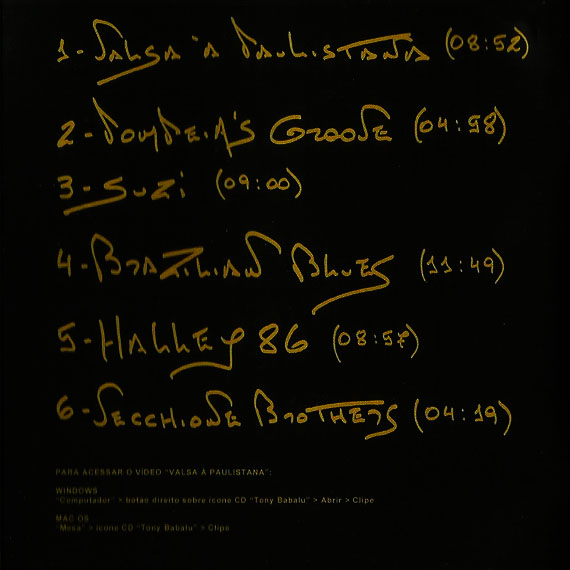 1-Valsa à Paulistana (08:52)
2-Pompeia's Groove (04:58)
3-Suzi (09:00)
4-Brazilian Blues (11:49)
5-Halley 86 (08:57)
6-Vecchione Brothers (04:19)
PARA ACESSAR O VÍDEO "VALSA À PAULISTANA":
WINDOWS
"Computador" > botão direito sobre ícone CD "Tony Babalu" > Abrir > Clipe
MAC OS
"Mesa" > ícone CD "Tony Babalu" > Clipe